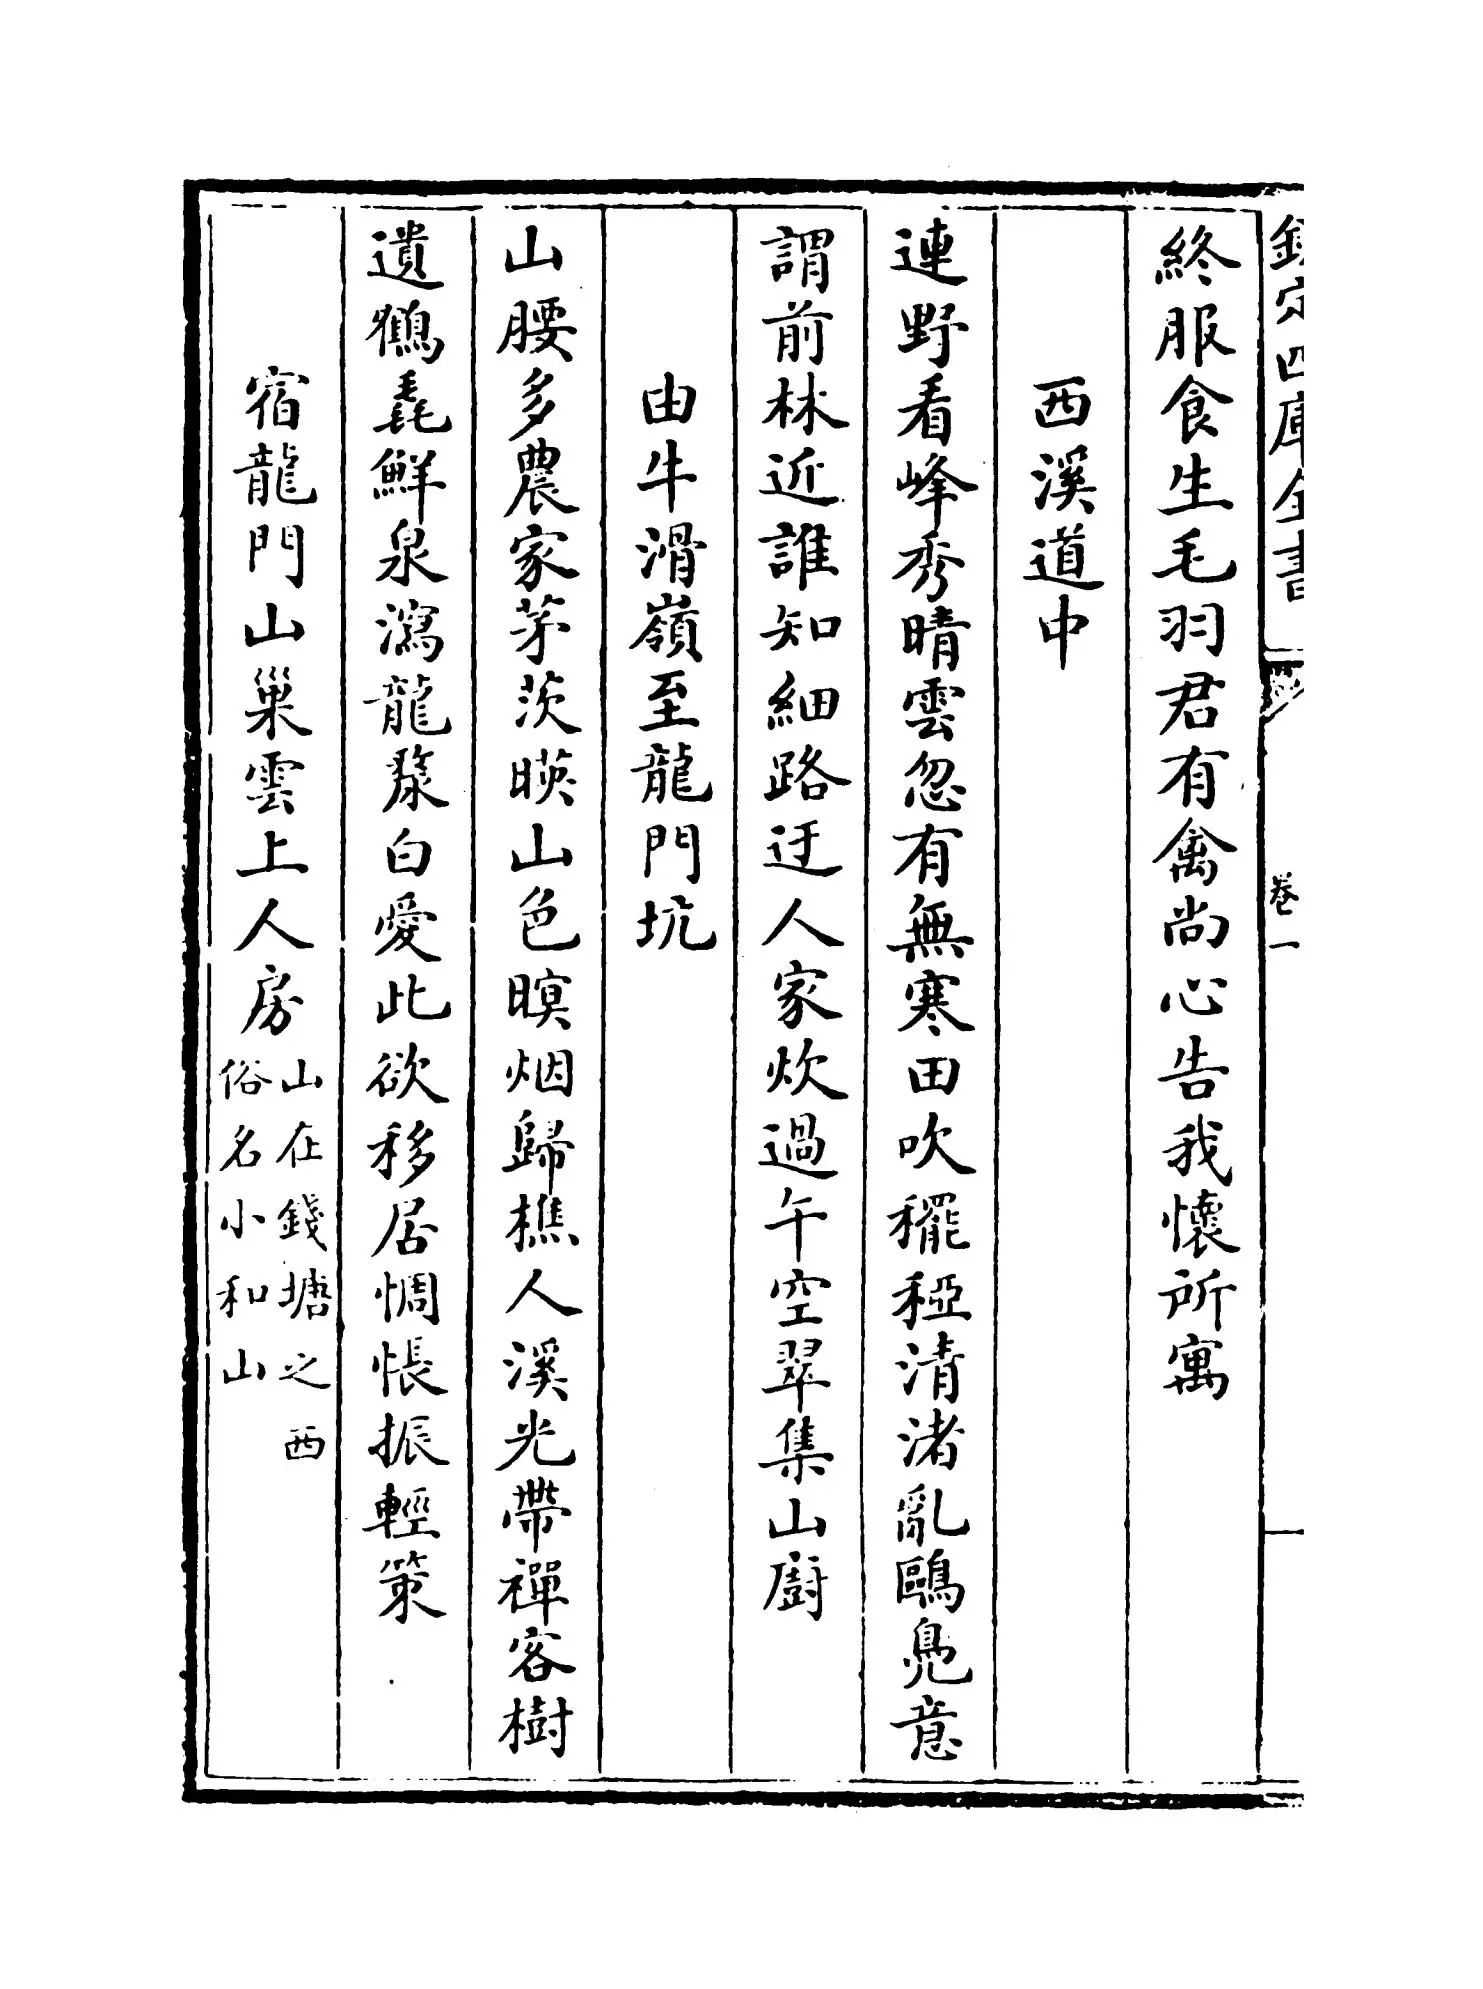 欽定四庫全書
卷一
終服食生毛羽君有禽尚心告我懷所寓
西溪道中
連野看峰秀晴雲忽有無寒田吹䆉稏清渚亂鷗鳧意
謂前林近誰知細路迂人家炊過午空翠集山廚
由牛滑嶺至龍門坑
山腰多農家茅茨暎山色暝烟歸樵人溪光帶禪客樹
遺鶴毳鮮泉瀉龍漦白愛此欲移居惆悵振輕策
宿龍門山巢雲上人房
山在錢塘之西
俗名小和山